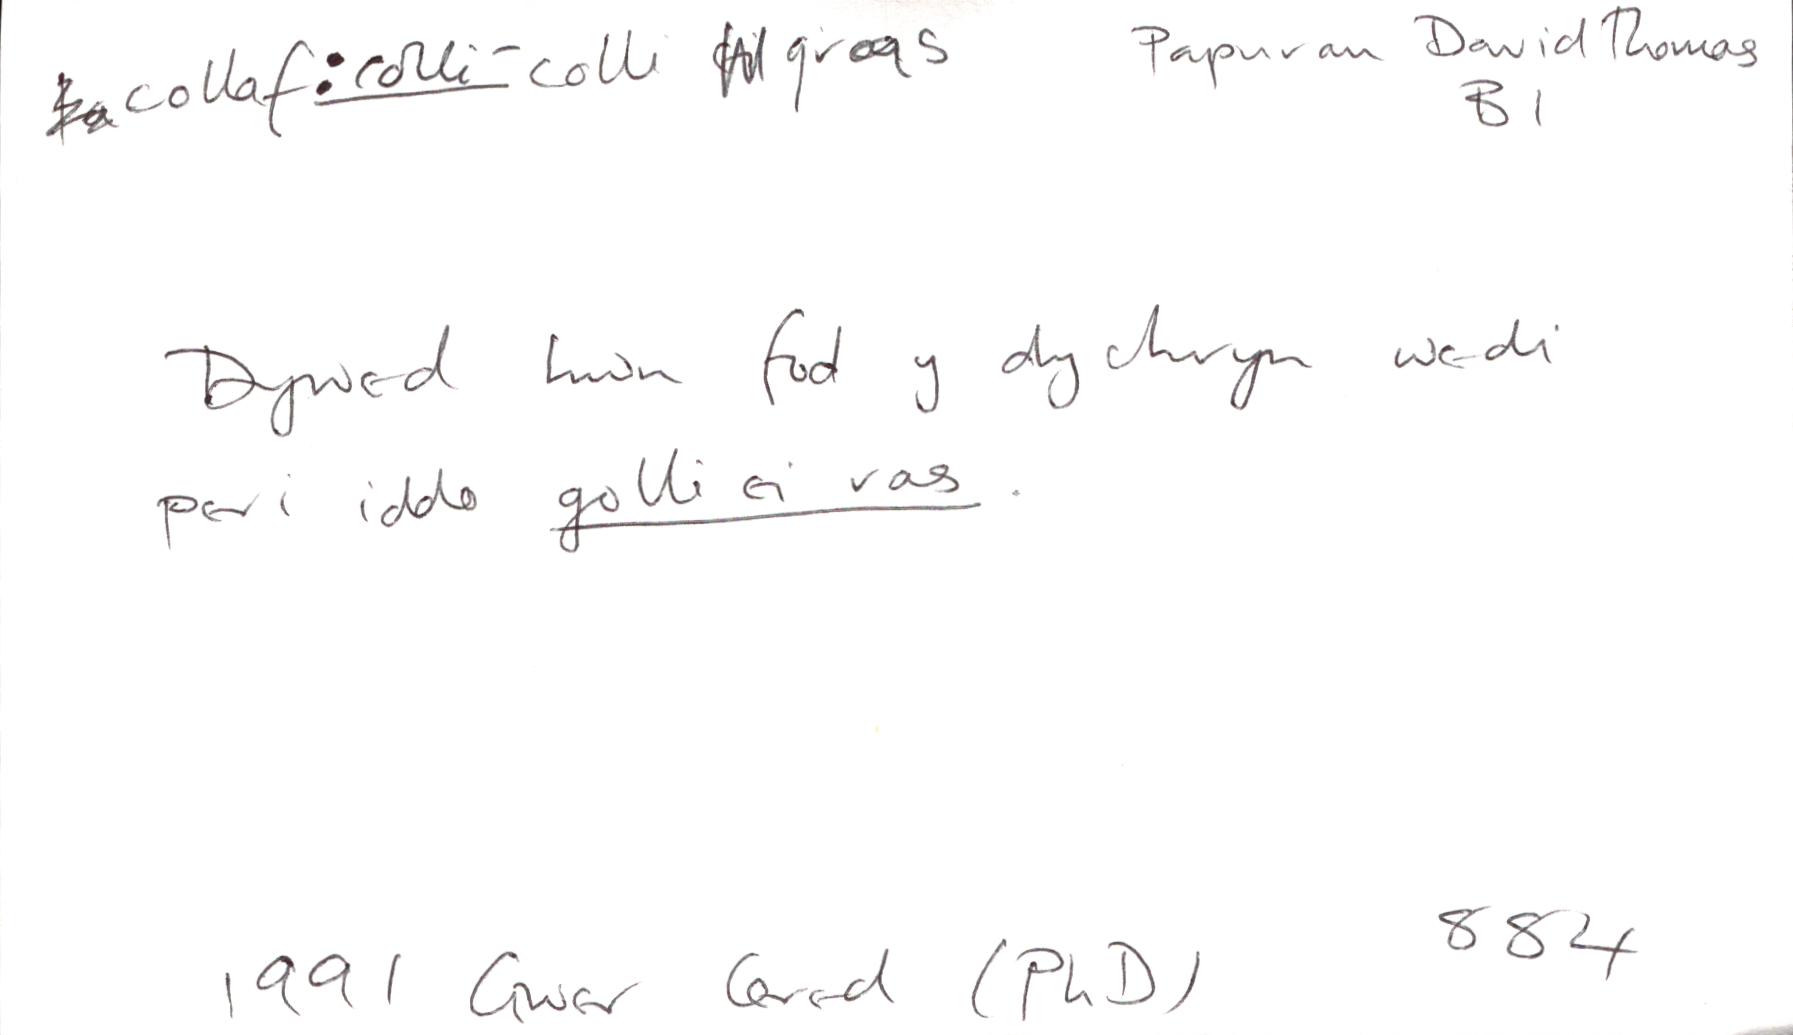 collaf: colli - colli graas Papurau David Thomas
B1
Dywed hwn fod y dychryn wedi
peri iddo golli ei ras.
884
1991 Gwer Cered (PhD)